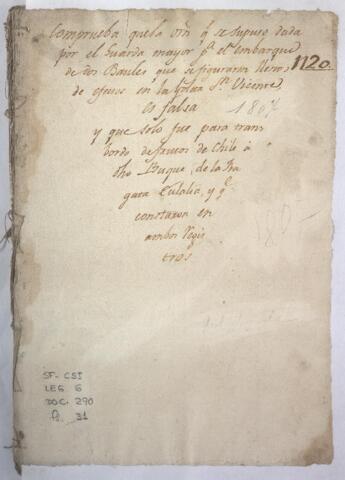 Comprueba que la orn q.e se supuso dada
por el Guarda mayor p.a el embarque
de dos Baules que se figuraron llenos
1120.
de efectos en la Goleta Sn. Vicente,
es falsa
1807
y que solo fue para trans
bordo de frutos de Chile á
dho Buque, de la fra
gata Eulalia, y q.e
constaron en
ambos Regis
tros
SF-CSI
LEG 6
DOC. 290
fs. 31